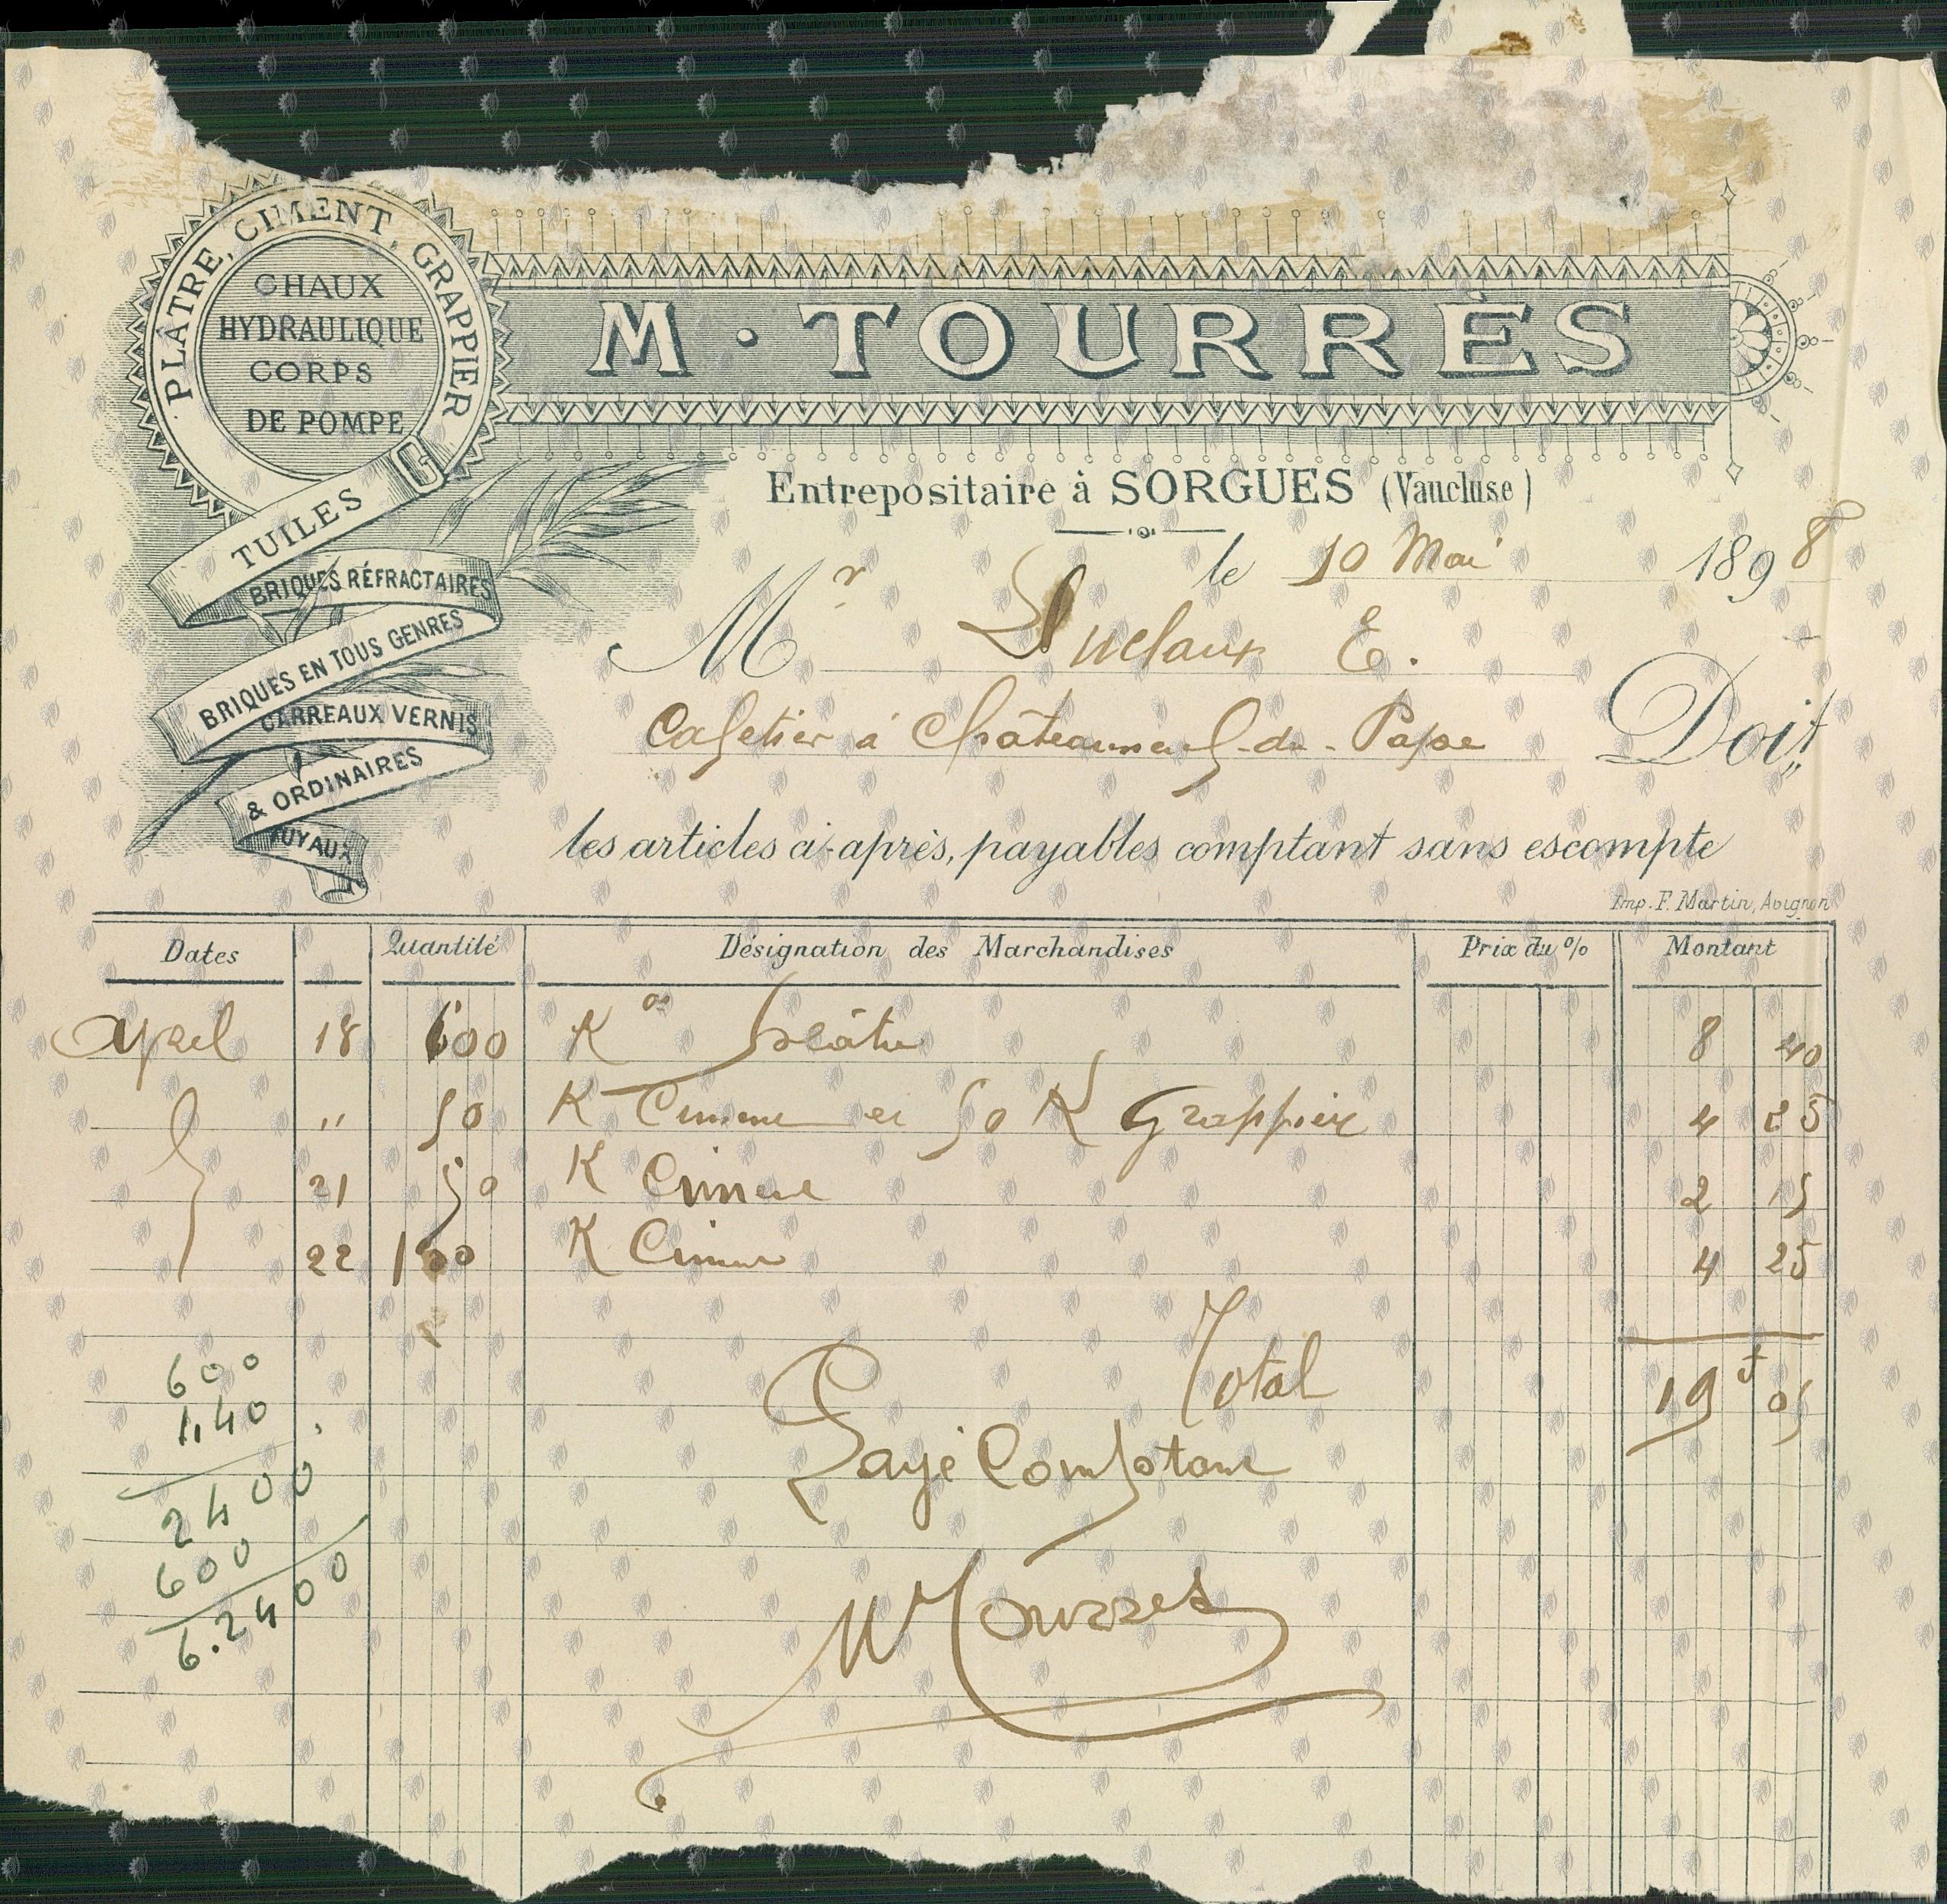 PLÂTRE, CIMENT, GRAPPIER
CHAUX
HYDRAULIQUE
CORPS
DE POMPE
TUILES
BRIQUES RÉFRACTAIRES
BRIQUES EN TOUS GENRES
CARREAUX VERNIS
& ORDINAIRES
TUYAUX
M. TOURRÈS
Entrepositaire à SORGUES (Vaucluse)
le 10 Mai 1898
Mr Duclaux E.
Cafetier à Châteauneuf-du-Pape Doit
les articles ci-après, payables comptant sans escompte
Imp. F. Martin, Avignon
Dates Quantité Désignation des Marchandises Prix du % Montant
April 18 600 Kos plâtre 8 40
" 50 K Ciment et 50 K Grappier 4 25
21 50 K Ciment 2 15
22 100 K Ciment 4 25
Total 19f 05
Payé Comptant
M Tourres
600
1,40
2400
600
6.2400